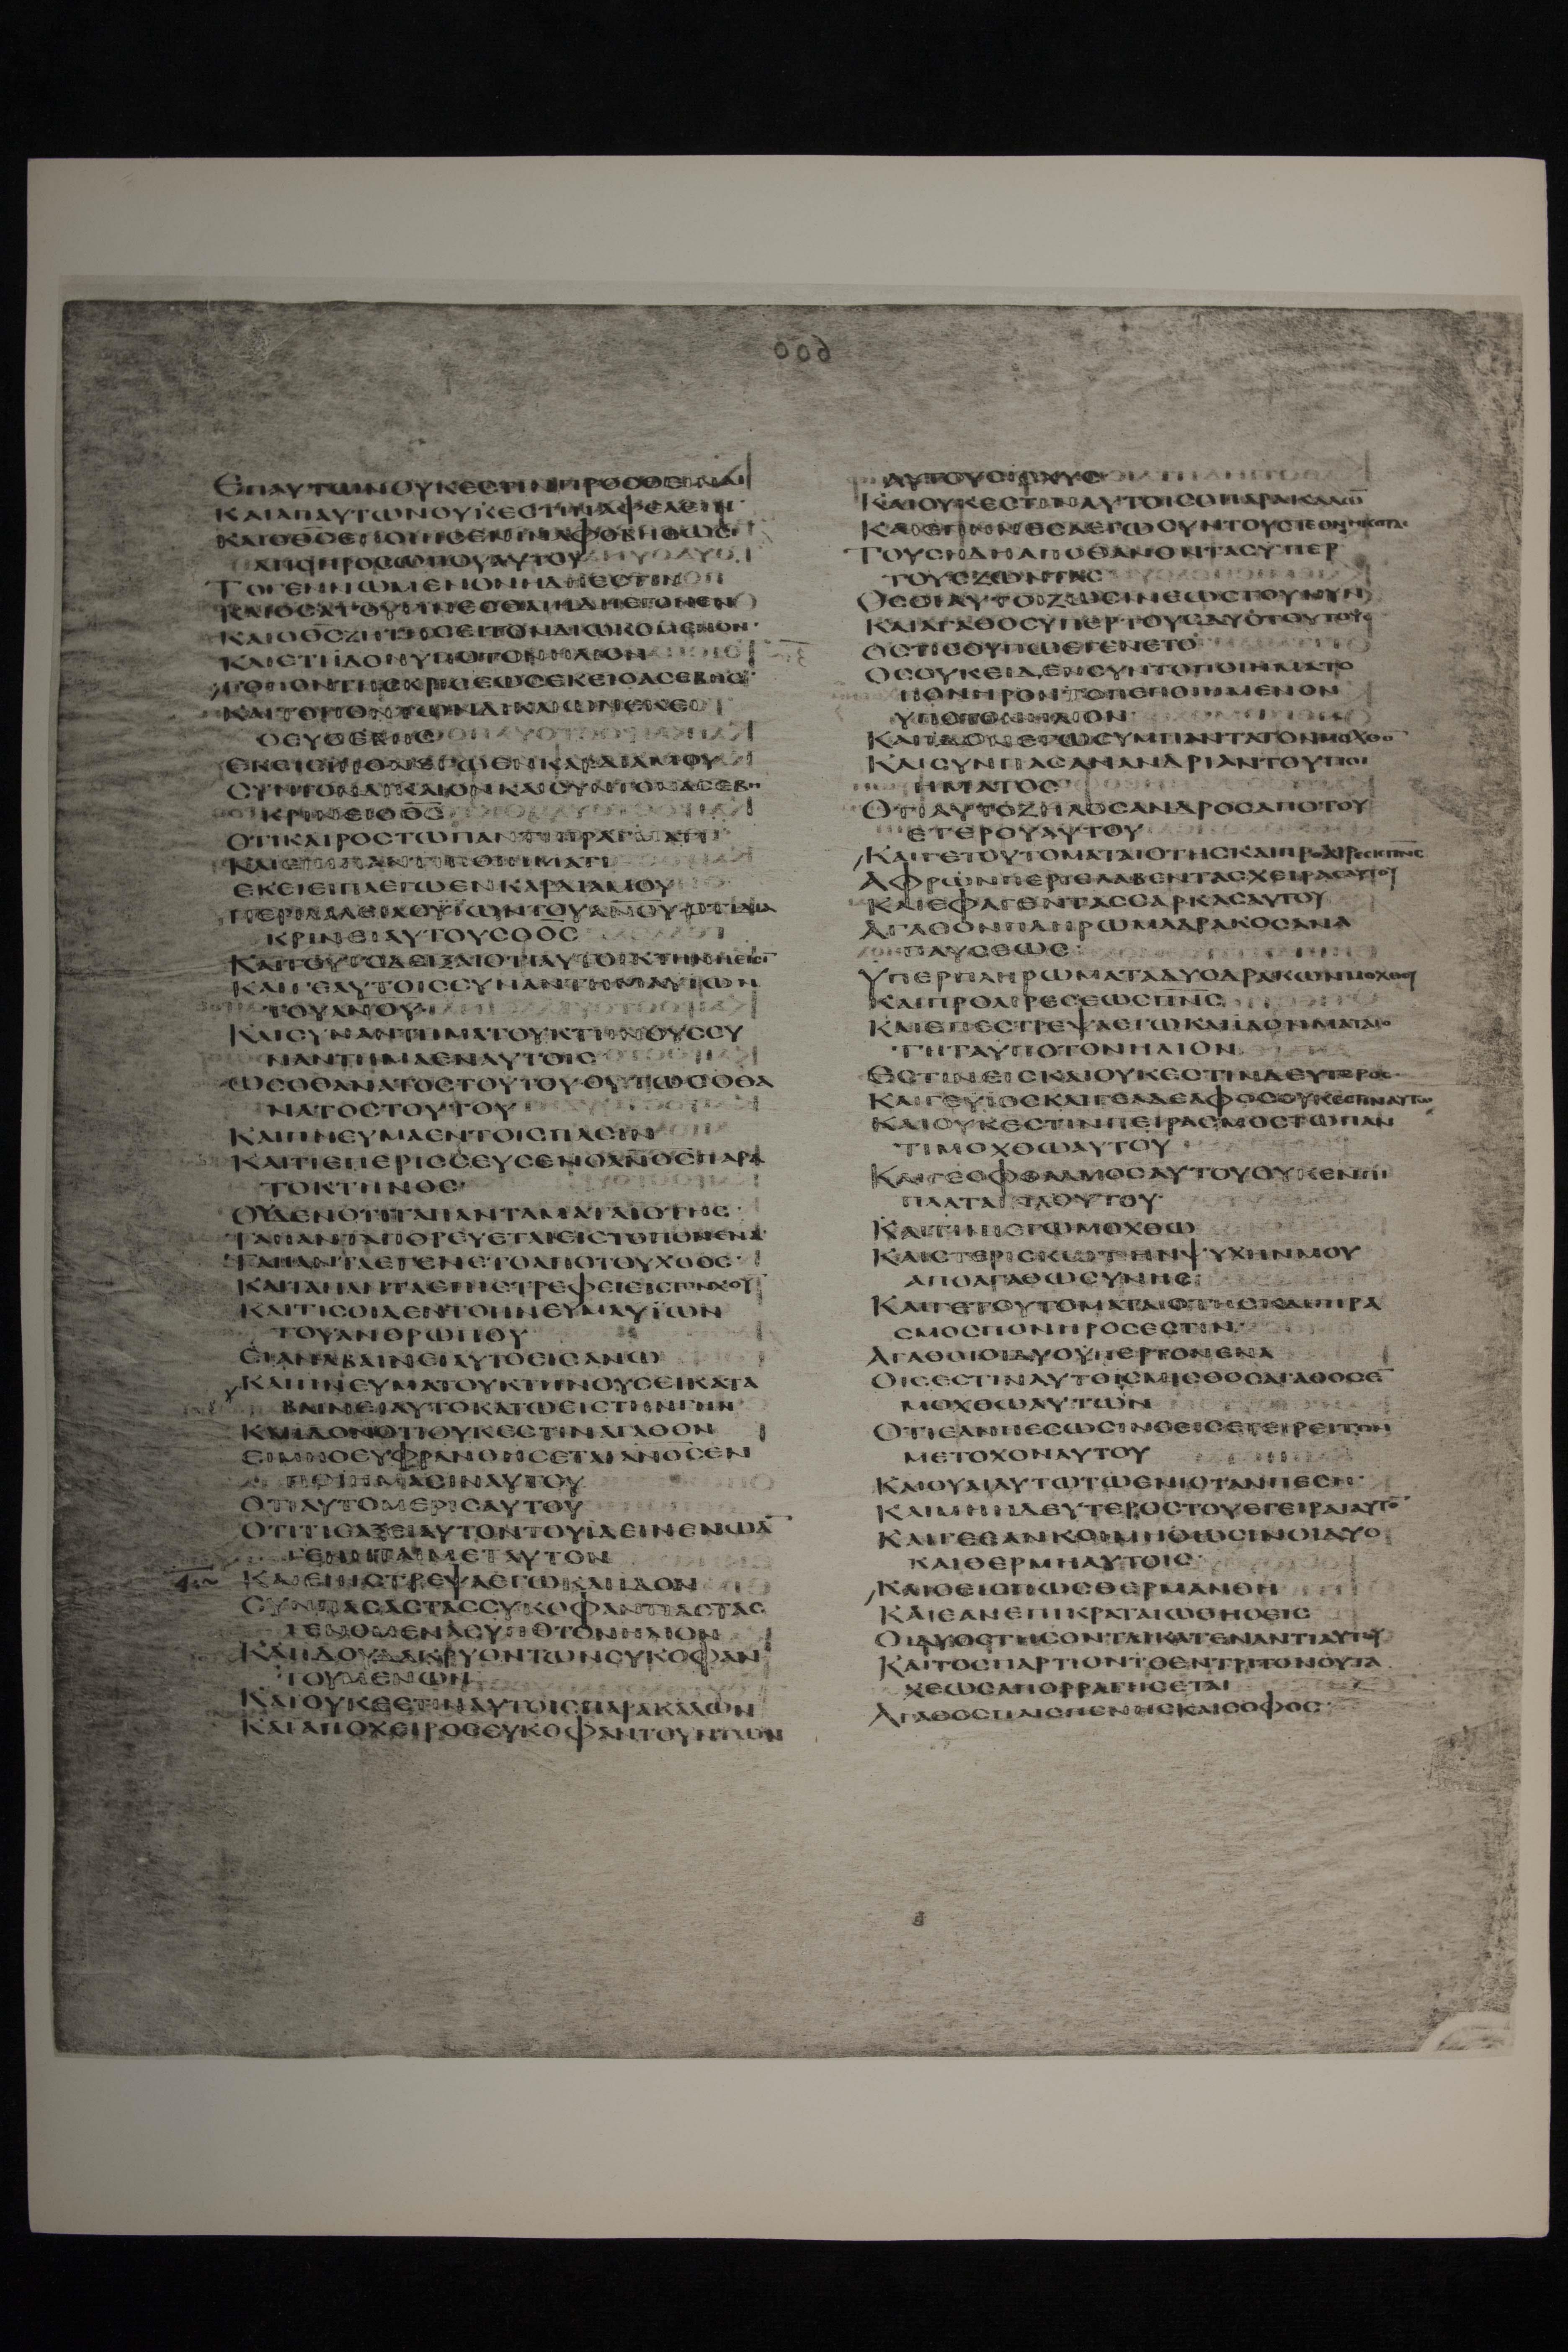 ΕΠΑΥΤΩΝΟΥΚΕΣΤΙΝΠΡΟΣΘΕΙΝΑΙ
ΚΑΙΑΠΑΥΤΩΝΟΥΚΕΣΤΙΝΑΦΕΛΕΙΝ·
ΚΑΙΟΘ̅Σ̅ΕΠΟΙΗΣΕΝΙΝΑΦΟΒΗΘΩΣΙ̅
ΑΠΟΠΡΟΣΩΠΟΥΑΥΤΟΥ
ΤΟΓΕΝΝΩΜΕΝΟΝΗΔΗΕΣΤΙΝ
ΚΑΙΟΣΑΤΟΥΓΙΝΕΣΘΑΙΗΔΗΓΕΓΟΝΕΝ
ΚΑΙΟΘ̅Σ̅ΖΗΤΗΣΕΙΤΟΝΔΙΩΚΟΜΕΝΟΝ·
ΚΑΙΕΤΙΪΔΟΝΥΠΟΤΟΝΗΛΙΟΝ
ΤΟΠΟΝΤΗΣΚΡΙΣΕΩΣΕΚΕΙΟΑΣΕΒΗΣ·
ΚΑΙΤΟΠΟΝΤΩΝΔΙΚΑΙΩΝΕΚΕΙ
ΟΕΥΣΕΒΗΣ
ΕΚΕΙΕΙΠΟΝΕΓΩΕΝΚΑΡΔΙΑΜΟΥ
ΣΥΝΤΟΝΔΙΚΑΙΟΝΚΑΙΣΥΝΤΟΝΑΣΕΒΗ
ΚΡΙΝΕΙΟΘ̅Σ̅
ΟΤΙΚΑΙΡΟΣΤΩΠΑΝΤΙΠΡΑΓΜΑΤΙ
ΚΑΙΕΠΙΠΑΝΤΙΠΟΙΗΜΑΤΙ
ΕΚΕΙΕΙΠΑΕΓΩΕΝΚΑΡΔΙΑΜΟΥ
ΠΕΡΙΛΑΛΕΙΑΣΥΪΩΝΤΟΥΑ̅Ν̅Ο̅Υ̅ΟΤΙΔΙΑ
ΚΡΙΝΕΙΑΥΤΟΥΣΟΘ̅Σ̅
ΚΑΙΤΟΥΤΟΔΕΙΞΑΙΟΤΙΑΥΤΟΙΚΤΗΝΗΕΙΣΙ̅
ΚΑΙΓΕΑΥΤΟΙΣΣΥΝΑΝΤΗΜΑΥΪΩΝ
ΤΟΥΑ̅Ν̅Ο̅Υ̅
ΚΑΙΣΥΝΑΝΤΗΜΑΤΟΥΚΤΗΝΟΥΣΣΥ
ΝΑΝΤΗΜΑΕΝΑΥΤΟΙΣ
ΩΣΟΘΑΝΑΤΟΣΤΟΥΤΟΥΟΥΤΩΣΟΘΑ
ΝΑΤΟΣΤΟΥΤΟΥ
ΚΑΙΠΝΕΥΜΑΕΝΤΟΙΣΠΑΣΙΝ
ΚΑΙΤΙΕΠΕΡΙΣΣΕΥΣΕΝΟΑ̅Ν̅Ο̅Σ̅ΠΑΡΑ
ΤΟΚΤΗΝΟΣ·
ΟΥΔΕΝΟΤΙΤΑΠΑΝΤΑΜΑΤΑΙΟΤΗΣ·
ΤΑΠΑΝΤΑΠΟΡΕΥΕΤΑΙΕΙΣΤΟΠΟΝΕΝΑ
ΤΑΠΑΝΤΑΕΓΕΝΕΤΟΑΠΟΤΟΥΧΟΟΣ·
ΚΑΙΤΑΠΑΝΤΑΕΠΙΣΤΡΕΦΕΙΕΙΣΤΟΝΧΟΥ̅
ΚΑΙΤΙΣΟΙΔΕΝΤΟΠΝΕΥΜΑΥΪΩΝ
ΤΟΥΑΝΘΡΩΠΟΥ
ΕΙΑΝΑΒΑΙΝΕΙΑΥΤΟΕΙΣΑΝΩ
ΚΑΙΠΝΕΥΜΑΤΟΥΚΤΗΝΟΥΣΕΙΚΑΤΑ
ΒΑΙΝΕΙΑΥΤΟΚΑΤΩΕΙΣΤΗΝΓΗΝ
ΚΑΙΙΔΟΝΟΤΙΟΥΚΕΣΤΙΝΑΓΑΘΟΝ
ΕΙΜΗΟΕΥΦΡΑΝΘΗΣΕΤΑΙΑ̅Ν̅Ο̅Σ̅ΕΝ
ΠΟΙΗΜΑΣΙΝΑΥΤΟΥ
ΟΤΙΑΥΤΟΜΕΡΙΣΑΥΤΟΥ
ΟΤΙΤΙΣΑΞΕΙΑΥΤΟΝΤΟΥΪΔΕΙΝΕΝΩΑ̅
ΓΕΝΗΤΑΙΜΕΤΑΥΤΟΝ
ΚΑΙΕΠΙΣΤΡΕΨΑΕΓΩΚΑΙΙΔΟΝ
ΣΥΝΠΑΣΑΣΤΑΣΣΥΚΟΦΑΝΤΙΑΣΤΑΣ
ΓΕΝΟΜΕΝΑΣΥΠΟΤΟΝΗΛΙΟΝ
ΚΑΙΙΔΟΥΔΑΚΡΥΟΝΤΩΝΣΥΚΟΦΑΝ
ΤΟΥΜΕΝΩΝ
ΚΑΙΟΥΚΕΣΤΙΝΑΥΤΟΙΣΠΑΡΑΚΑΛΩΝ
ΚΑΙΑΠΟΧΕΙΡΟΣΣΥΚΟΦΑΝΤΟΥΝΤΩΝ
ΑΥΤΟΥΣΙΣΧΥΣ
ΚΑΙΟΥΚΕΣΤΙΝΑΥΤΟΙΣΟΠΑΡΑΚΑΛΩ̅
ΚΑΙΕΠΗΝΕΣΑΕΓΩΣΥΝΤΟΥΣΤΕΘΝΗΚΟΤΑΣ
ΤΟΥΣΗΔΗΑΠΟΘΑΝΟΝΤΑΣΥΠΕΡ
ΤΟΥΣΖΩΝΤΑΣ
ΟΣΟΙΑΥΤΟΙΖΩΣΙΝΕΩΣΤΟΥΝΥΝ
ΚΑΙΑΓΑΘΟΣΥΠΕΡΤΟΥΣΔΥΟΤΟΥΤΟΥΣ
ΟΣΤΙΣΟΥΠΩΕΓΕΝΕΤΟ
ΟΣΟΥΚΕΙΔΕΝΣΥΝΤΟΠΟΙΗΜΑΤΟ
ΠΟΝΗΡΟΝΤΟΠΕΠΟΙΗΜΕΝΟΝ
ΥΠΟΤΟΝΗΛΙΟΝ
ΚΑΙΪΔΟΝΕΓΩΣΥΜΠΑΝΤΑΤΟΝΜΟΧΘΟ̅
ΚΑΙΣΥΝΠΑΣΑΝΑΝΔΡΙΑΝΤΟΥΠΟΙ
ΗΜΑΤΟΣ
ΟΤΙΑΥΤΟΖΗΛΟΣΑΝΔΡΟΣΑΠΟΤΟΥ
ΕΤΕΡΟΥΑΥΤΟΥ
ΚΑΙΓΕΤΟΥΤΟΜΑΤΑΙΟΤΗΣΚΑΙΠΡΟΑΙΡΕΣΙΣΠ̅Ν̅Σ̅
ΑΦΡΩΝΠΕΡΙΕΛΑΒΕΝΤΑΣΧΕΙΡΑΣΑΥΤΟΥ
ΚΑΙΕΦΑΓΕΝΤΑΣΣΑΡΚΑΣΑΥΤΟΥ
ΑΓΑΘΟΝΠΛΗΡΩΜΑΔΡΑΚΟΣΑΝΑ
ΠΑΥΣΕΩΣ·
ΥΠΕΡΠΛΗΡΩΜΑΤΑΔΥΟΔΡΑΚΩΝΜΟΧΘΟΥ
ΚΑΙΠΡΟΑΙΡΕΣΕΩΣΠ̅Ν̅Σ̅
ΚΑΙΕΠΕΣΤΡΕΨΑΕΓΩΚΑΙΙΔΟΝΜΑΤΑΙΟ
ΤΗΤΑΥΠΟΤΟΝΗΛΙΟΝ
ΕΣΤΙΝΕΙΣΚΑΙΟΥΚΕΣΤΙΝΔΕΥΤΕΡΟΣ·
ΚΑΙΓΕΥΪΟΣΚΑΙΓΕΑΔΕΛΦΟΣΟΥΚΕΣΤΙΝΑΥΤΩ
ΚΑΙΟΥΚΕΣΤΙΝΠΕΙΡΑΣΜΟΣΤΩΠΑΝ
ΤΙΜΟΧΘΩΑΥΤΟΥ
ΚΑΙΓΕΟΦΘΑΛΜΟΣΑΥΤΟΥΟΥΚΕΝΠΙ
ΠΛΑΤΑΙΠΛΟΥΤΟΥ·
ΚΑΙΤΙΝΙΕΓΩΜΟΧΘΩ
ΚΑΙΣΤΕΡΙΣΚΩΤΗΝΨΥΧΗΝΜΟΥ
ΑΠΟΑΓΑΘΩΣΥΝΗΣ
ΚΑΙΓΕΤΟΥΤΟΜΑΤΑΙΟΤΗΣΚΑΙΠΙΡΑ
ΣΜΟΣΠΟΝΗΡΟΣΕΣΤΙΝ·
ΑΓΑΘΟΙΟΙΔΥΟΥΠΕΡΤΟΝΕΝΑ
ΟΙΣΕΣΤΙΝΑΥΤΟΙΣΜΙΣΘΟΣΑΓΑΘΟΣΕ̅
ΜΟΧΘΩΑΥΤΩΝ
ΟΤΙΕΑΝΠΕΣΩΣΙΝΟΕΙΣΕΓΕΙΡΕΙΤΟΝ
ΜΕΤΟΧΟΝΑΥΤΟΥ
ΚΑΙΟΥΑΙΑΥΤΩΤΩΕΝΙΟΤΑΝΠΕΣΗ·
ΚΑΙΜΗΗΔΕΥΤΕΡΟΣΤΟΥΕΓΕΙΡΑΙΑΥΤΟ̅
ΚΑΙΓΕΕΑΝΚΟΙΜΗΘΩΣΙΝΟΙΔΥΟ
ΚΑΙΘΕΡΜΗΑΥΤΟΙΣ·
ΚΑΙΟΕΙΣΠΩΣΘΕΡΜΑΝΘΗ
ΚΑΙΕΑΝΕΠΙΚΡΑΤΑΙΩΘΗΟΕΙΣ
ΟΙΔΥΟΣΤΗΣΟΝΤΑΙΚΑΤΕΝΑΝΤΙΑΥΤΟΥ
ΚΑΙΤΟΣΠΑΡΤΙΟΝΤΟΕΝΤΡΙΤΟΝΟΥΤΑ
ΧΕΩΣΑΠΟΡΡΑΓΗΣΕΤΑΙ
ΑΓΑΘΟΣΠΑΙΣΠΕΝΗΣΚΑΙΣΟΦΟΣ·